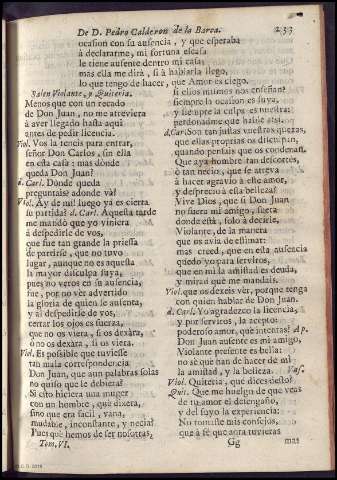 De D. Pedro Calderon de la Barca. 233
ocasion con su ausencia, y que esperaba
à declararme, mi fortuna escasa
le tiene ausente dentro mi casa;
mas ella me dirà, si à hablarla llego,
lo que tengo de hacer, que Amor es ciego.
Salen Violante, y Quiteria.
Menos que con un recado
de Don Juan, no me atreviera
à aver llegado hasta aqui
antes de pedir licencia.
Viol. Vos la teneis para entrar,
señor Don Carlos, sin ella
en esta casa: mas dònde
queda Don Juan?
d. Carl. Dònde queda
preguntais? adonde và?
Viol. Ay de mi! luego yà es cierta
su partida? d. Carl. Aquesta tarde
me mandò que yo viniera
à despedirle de vos,
que fue tan grande la priessa
de partirse, que no tuvo
lugar, aunque no es aquesta
la mayor disculpa suya,
pues no veros en su ausencia,
fue, por no vèr advertido
la gloria de quien se ausenta,
y al despedirse de vos,
cerrar los ojos es fuerza,
que no os viera, si os dexàra,
ò no os dexàra, si os viera.
Viol. Es possible que tuviesse
tan mala correspondencia
Don Juan, que aun palabras solas
no quiso que le debiera?
Si esto hiciera una muger
con un hombre, què dixera,
sino que era facil, vana,
mudable, inconstante, y necia?
Pues què hemos de ser nosotras,
Tom. VI.
si ellos mismos nos enseñan?
siempre la ocasion es suya,
y siempre la culpa es nuestra:
perdonadme que hable assi.
d. Carl. Son tan justas vuestras quexas,
que ellas proprias os disculpan,
quando pensais que os condenan.
Que aya hombre tan descortès,
ò tan necio, que se atreva
à hacer agravio à esse amor,
y desprecio à essa belleza!
Vive Dios, que si Don Juan
no fuera mi amigo, fuera
donde està, solo à decirle,
Violante, de la manera
que os avia de estimar:
mas creed, que en esta ausencia
quedo yo para serviros,
que en mi la amistad es deuda,
y mirad què me mandais.
Viol. que os dexeis vèr, porque tenga
con quien hablar de Don Juan.
d. Carl. Yo agradezco la licencia,
y por serviros, la acepto:
poderoso amor, què intentas? Ap.
Don Juan ausente es mi amigo,
Violante presente es bella:
no sè què han de hacer de mi
la amistad, y la belleza. Vas.
Viol. Quiteria, què dices desto?
Quit. Que me huelgo de que veas
de tu amor el detengaño,
y del suyo la experiencia:
No tomaste mis consejos,
que à fè que aora tuvieras
Gg mas